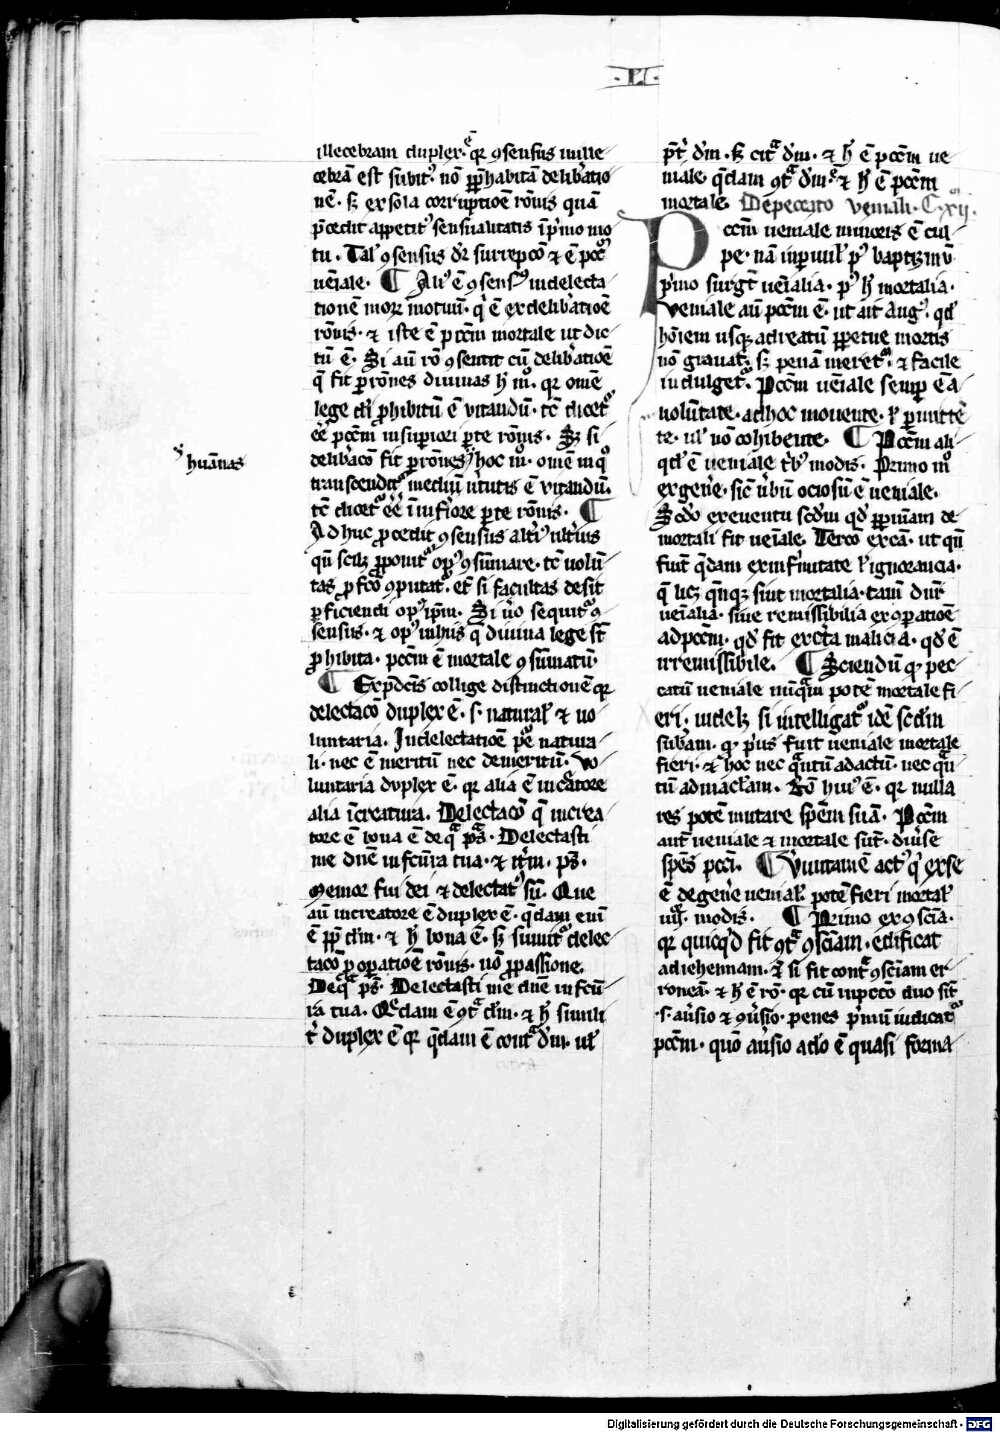 .LI.
illecebram duplex ē qr ꝯsensus in ille
cebrā est subit᷒. nō p̄habitā delib̄atio
nē. sꝫ ex sola corruptiōe rōnis quā
p̄cedit appetit᷒ sensualitatis ī p̄mo mo
tu. Tal᷒ ꝯsensus dr̄ surrepcō ⁊ ē pccm̄
ueīale. ¶ Ali᷒ ē ꝯsens᷒ in delecta
tionē morꝝ motuū. q̄ ē ex delib̄atiōe
rōnis. ⁊ iste ē pccm̄ mortale ut dic
tū ē. Si aū rō ꝯsentit cū delib̄atiōe
q̄ fit ꝑ rōnes diuinas h mō. qr omē
lege di p̄hibitū ē vitandū. tc̄ dicet᷒
eē pccm̄ in supiori ꝑte rōnis. Sꝫ si
delib̄acō fit ꝑ rōnes hoc mō. omē in qō
transcendit᷒ mediū uirtutis ē vitandū.
tc̄ dicet᷒ eē ī inf̄iore ꝑte rōnis. ¶
Ad huc p̄cedit ꝯsensus alt̄i᷒ ult̄ius
qn̄ scilꝫ p̄ponit᷒ op᷒ ꝯsūmare. tc̄ uolū
tas p̄ fcō ꝯputat᷒. et si facultas desit
ꝑficiendi op᷒ ip̄m. Si uō sequit᷒ ꝯ
sensus. ⁊ op᷒ in hiis q̄ diuina lege st̄
ꝓhibita. pccm̄ ē mortale ꝯsūmatū.
¶ Ex p̄dc̄is collige distinctionē qr
delectacō duplex ē. s. natural᷒ ⁊ uo
luntaria. In delectatiōe pō natura
li. nec ē meritū nec demeritū. Vo
luntaria duplex ē. qr alia ē in c̄atore
alia ī creatura. Delectacō q̄ in crea
tore ē bona ē de q̄ ps̄. Delectasti
me dn̄e in fc̄ura tua. ⁊ itm̄. ps̄.
Memor fui dei ⁊ delectat᷒ sū. Que
aū in creatore ē duplex ē. q̄dam enī
ē ꝓp̄ dm̄. ⁊ h̄ bona ē. sꝫ sumit᷒ delec
tacō ꝓ oꝑatiōe rōnis. nō ꝓ passione.
De q̄ ps̄. Delectasti me dn̄e in fc̄u
ra tua. Qedam ē ꝯt̄ dm̄. ⁊ h̄ simili
t̄ duplex ē qr q̄dam ē cont̄ dm̄. ul᷒
huānas
p̄t̄ dm̄. sꝫ cit̄ dm̄. ⁊ h̄ ē pccm̄ ue
niale. q̄dam ꝯt̄ dm̄. ⁊ h̄ ē pccm̄
mortale. De peccato veniali. C. xii.
Pccm̄ ueniale minoris ē cul
pe. nā in puul᷒ p᷒ baptizmū
p̄mo surgt̄ ueīalia. p᷒ h̄ mortalia.
Veniale aū pccm̄ ē. ut ait Aug᷒. qd̓
hoīem usqꝫ ad reatū ꝑpetue mortis
nō grauat. sꝫ penā meret᷒. ⁊ facile
indulget᷒. Pccm̄ ueīale semꝑ ē ā
uolūtate. ad hoc mouente. ł ꝑmitte
te. ul᷒ nō cohibente. ¶ Pccm̄ ali
qd̓ ē ueniale t̄b᷒ modis. Primo mō
ex gen̄e. sic̄ ūbū ociosū ē ueniale.
Scd̓o ex euentu scd̓m qd̓ ꝑ ueniam de
mortali fit ueīale. Tercō ex cā. ut qn̄
fiūt q̄dam ex infirmitate ł ignorancia.
q̄ lic̄ qn̄qꝫ sint mortalia. tam̄ dūt᷒
ueīalia. siue remissibilia ex ꝯpatiōe
ad pccm̄. qd̓ fit ex c̄ta malicia. qd̓ ē
irremissibile. ¶ Sciendū ꝙ pec
catū ueniale nūqm̄ potē mortale fi
eri. uidelꝫ si intelligat᷒ idē scd̓m
sub̄am. ꝙ p᷒us fuit ueniale mortale
fieri. ⁊ hoc nec q̄ntū ad actū. nec q̄n
tū ad maculam. Rō hui᷒ ē. qr nulla
res potē mutare spēm suā. Pccm̄
aut̄ ueniale ⁊ mortale sūt. diu̓se
spēs pcci. ¶ Vnūtamē act᷒ q̓ ex se
ē de gen̄e uenial᷒. potē fieri mortal᷒
iiii. modis. ¶ Primo ex ꝯscīa.
qr quicqd̓ fit ꝯt̄ ꝯscīam. edificat
ad iehennam. ⁊ si fit cont̄ ꝯscīam er
roneā. ⁊ h̄ ē rō. qr cū in pccō duo sit̄
.s. au̓sio ⁊ ꝯu̓sio. penes p̄mū iudicat᷒
pccm̄. quō au̓sio adō ē quasi forma